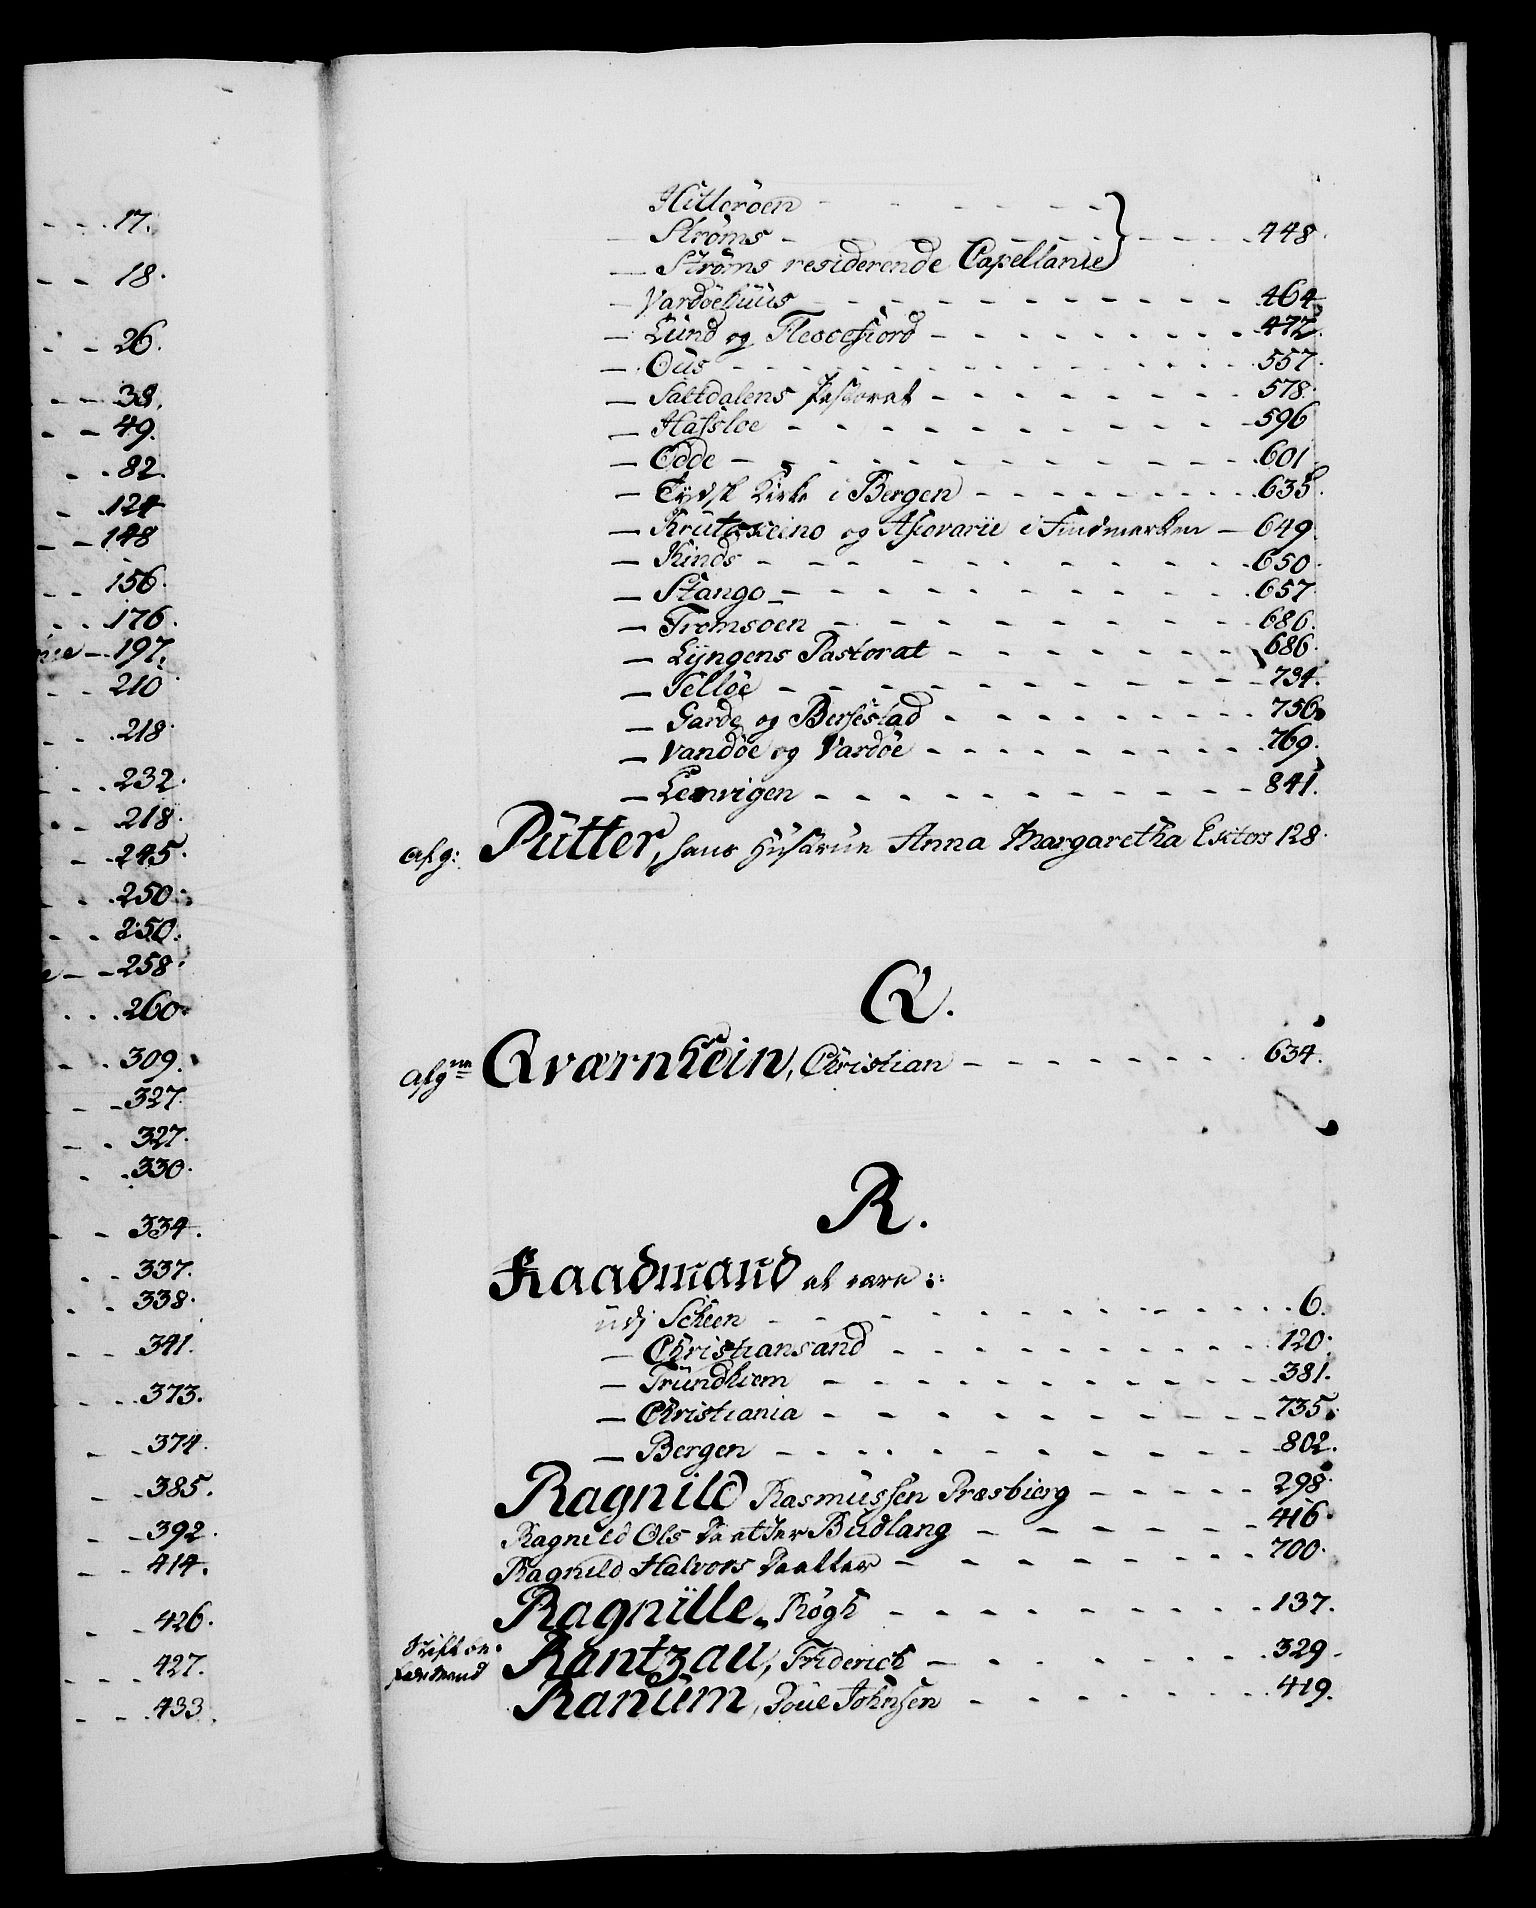 17.
18.
26.
38.
49.
82.
124
148
156.
176.
197.
210
218.
232.
218.
245.
250.
250.
258.
260.
309.
327.
327.
330.
334.
337.
338.
341.
373.
374.
385.
392.
414.
426.
427.
433.
Hitterøen
— Strøms - - - 448.
— Strøms residerende Capellanie
— Vardøehuus - - - 464
— Lund og Fleccefiord - - - 472.
— Ous - - - 557.
— Saltdalens Pastorat - - - 578.
— Hafsloe - - - 596
— Odde - - - 601
— Tydsk Kirke i Bergen - - - 635.
— Krutokeino og Afiovarie i Findmarken — 649
— Kinds - - - 650.
— Stange - - - 657
— Tromsoen - - - 686.
— Lyngens Pastorat - - - 686.
— Felløe - - - 734.
— Garde og Berfestad - - - 756.
— Vandøe og Vardøe - - - 769.
— Lenvigen - - - 841.
afg: Pütter, hans Hustrue Anna Margaretha 128.
Q.
afgne Qværnhein, Christian - - - 634.
R.
Raadmand at være :
udj Scheen - - - 6.
— Christiansand - - - 120.
— Trundhiem - - - 381.
— Christiania - - - 735.
— Bergen - - - 802.
Ragnild Rasmussen Præsbierg - - - 298.
Ragnild Ols Daatter Budlang - - - 416.
Ragnild Halvors Daatter - - - 700.
Ragnille Røgh - - - 137.
Rantzau, Friderich - - - 329.
Ranum, Poul Johnsen - - - 419.